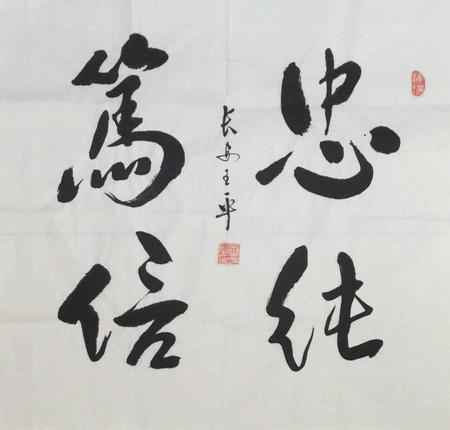 忠纯
笃信
长安王平